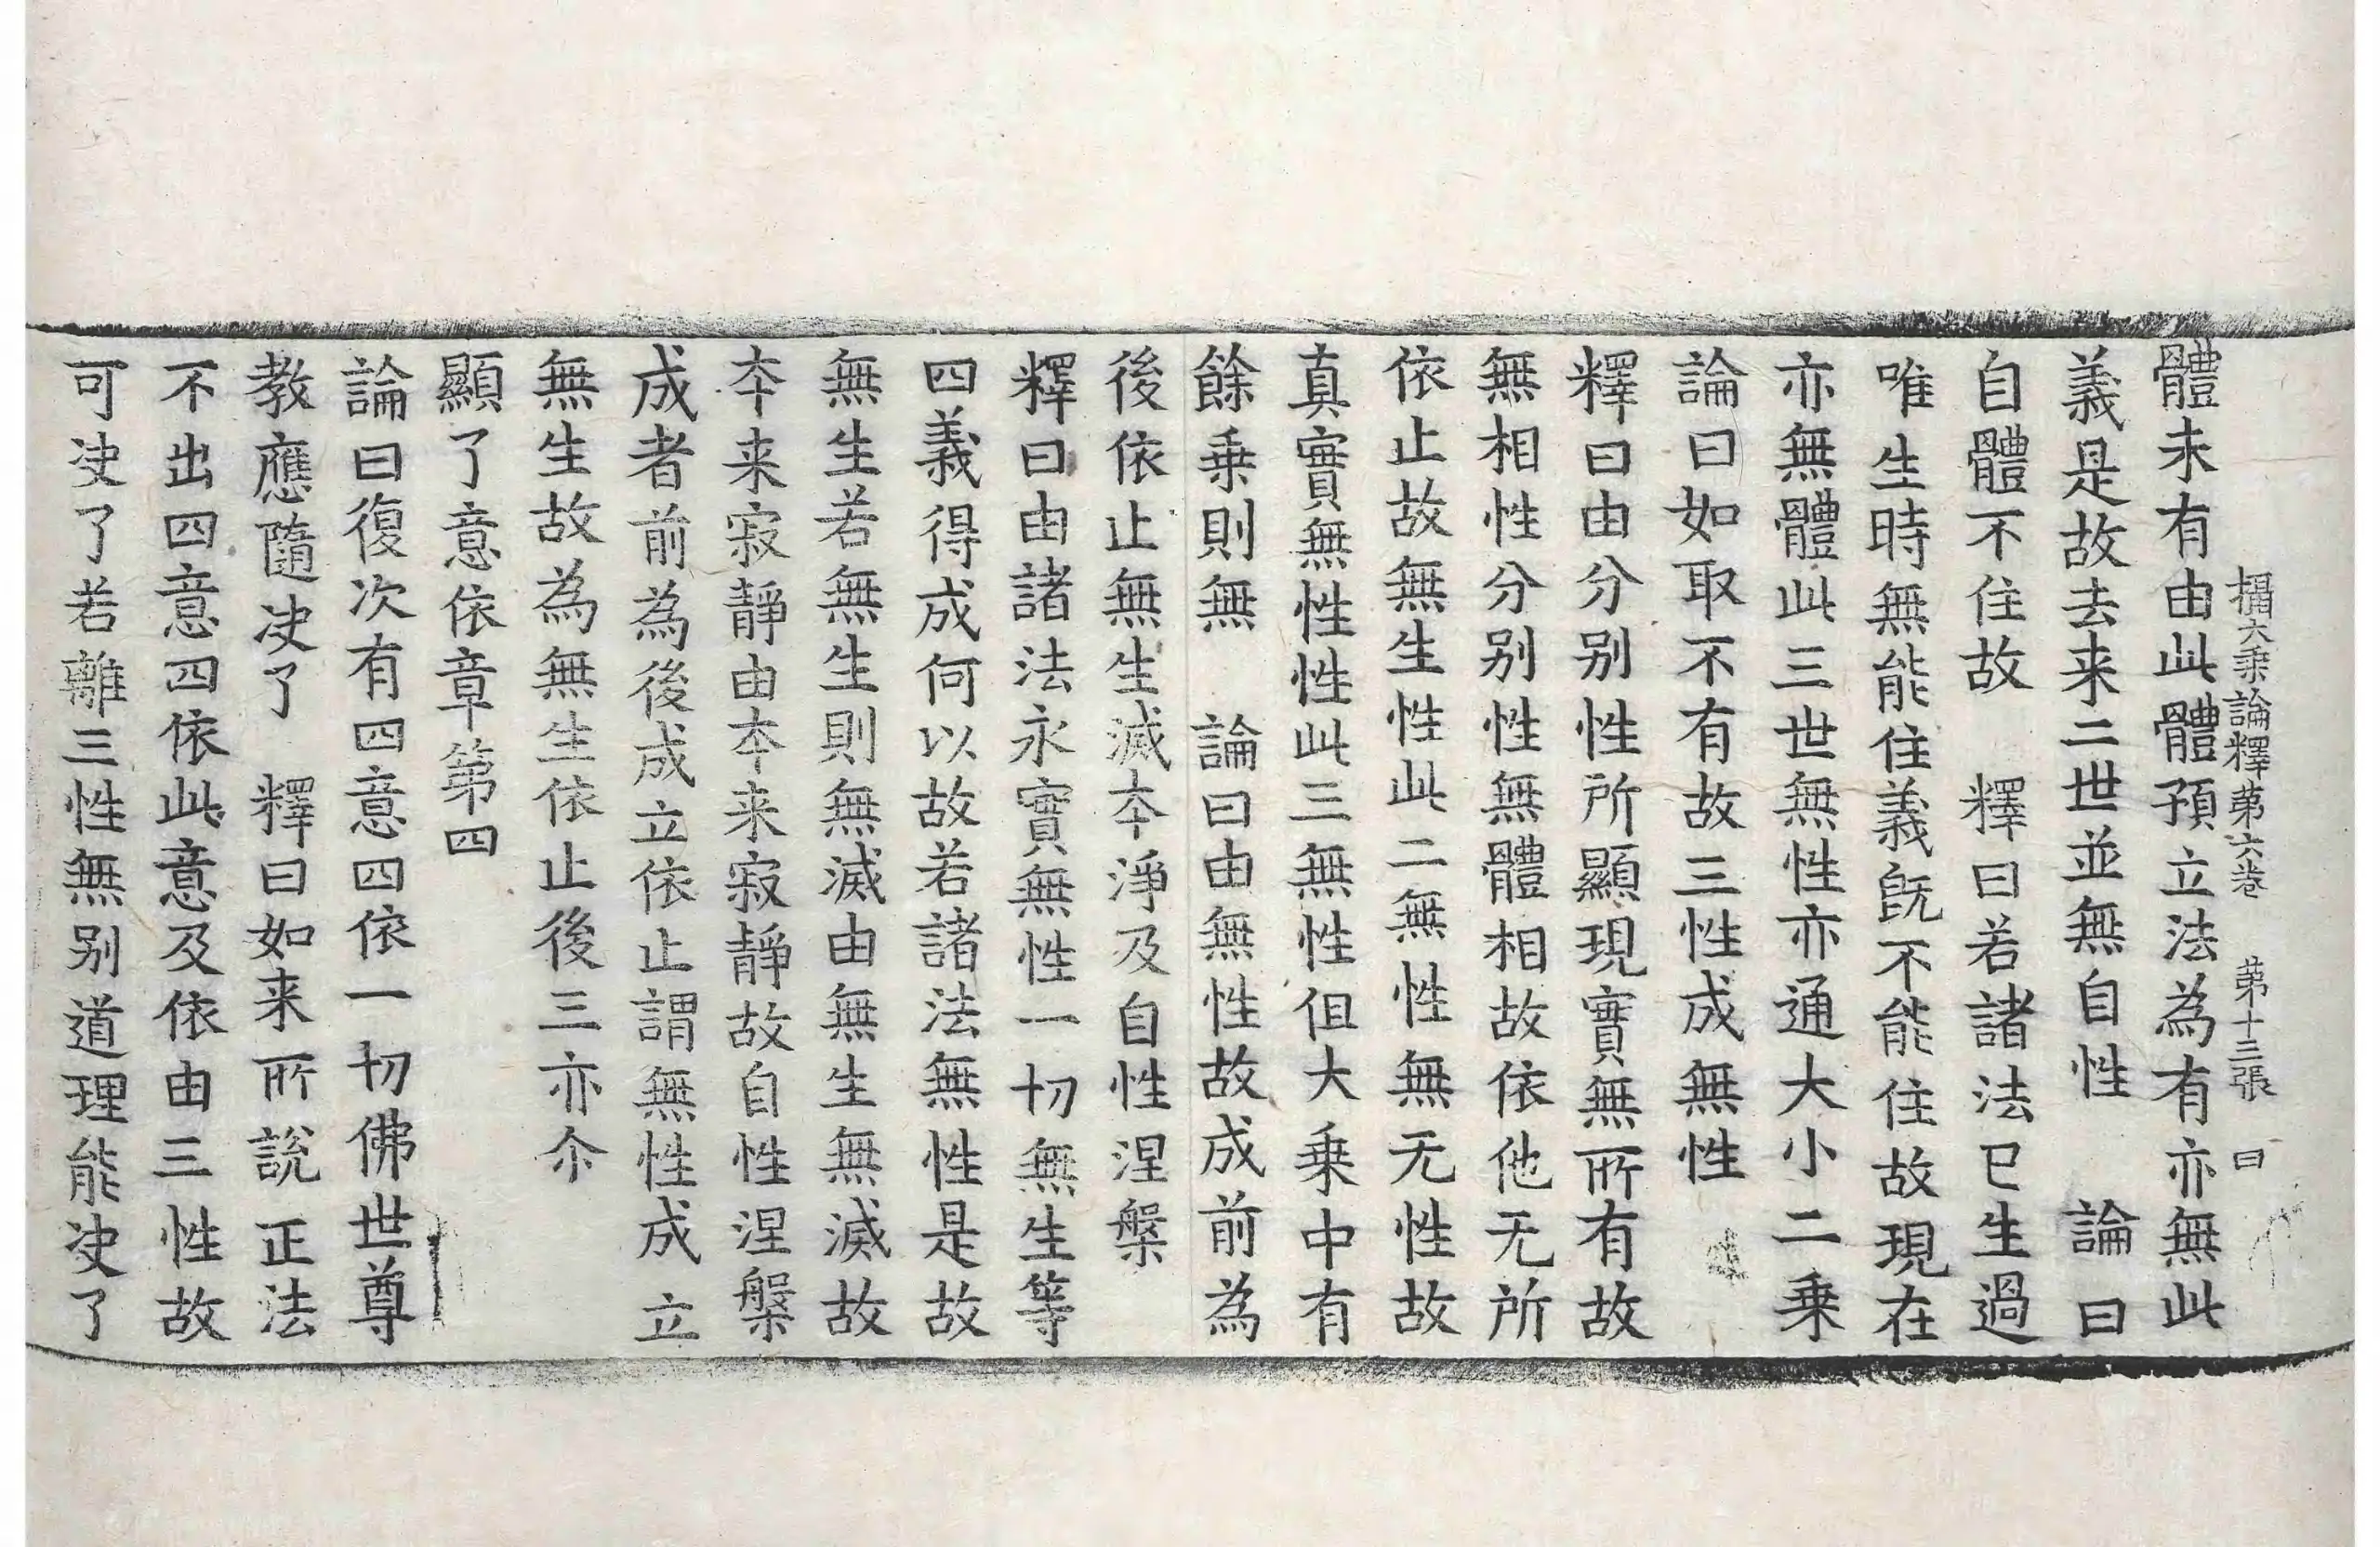 攝大乘論釋第六卷　第十三張　曰
體未有由此體預立法為有亦無此
義是故去来二世並無自性　論曰
自體不住故　釋曰若諸法已生過
唯生時無能住義既不能住故現在
亦無體此三世無性亦通大小二乗
論曰如取不有故三性成無性
釋曰由分别性所顯現實無所有故
無相性分别性無體相故依他无所
依止故無生性此二無性無无性故
真實無性性此三無性但大乗中有
餘乗則無　論曰由無性故成前為
後依止無生滅夲淨及自性涅槃
釋曰由諸法永實無性一切無生等
四義得成何以故若諸法無性是故
無生若無生則無滅由無生無滅故
夲来寂靜由夲来寂靜故自性涅槃
成者前為後成立依止謂無性成立
無生故為無生依止後三亦尒
顯了意依章第四
論曰復次有四意四依一切佛世尊
教應隨决了　釋曰如来所說正法
不出四意四依此意及依由三性故
可决了若離三性無别道理能决了